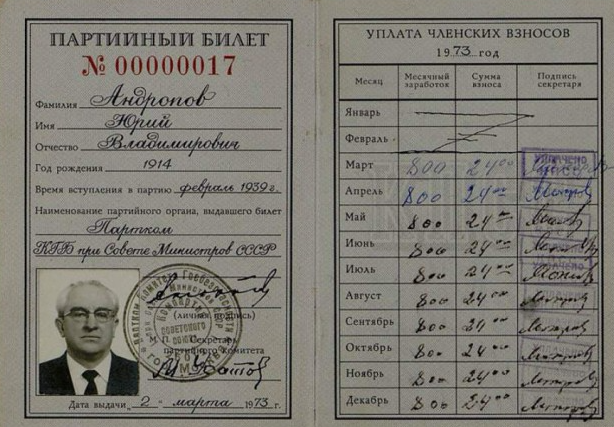 ПАРТИЙНЫЙ БИЛЕТ
№ 00000017
Фамилия Андропов
Имя Юрий
Отчество Владимирович
Год рождения 1914
Время вступления в партию февраль 1939 г.
Наименование партийного органа, выдавшего билет
Партком
КГБ при Совете Министров СССР
(личная подпись)
М. П. Секретарь
партийного комитета
Дата выдачи „2" марта 1973 г.
УПЛАТА ЧЛЕНСКИХ ВЗНОСОВ
1973 год
Месяц Месячный заработок Сумма взноса Подпись секретаря
Январь
Февраль
Март 800 24 00 УПЛАЧЕНО
Апрель 800 24 00
Май 800 24 00
Июнь 800 24 00
Июль 800 24 00
Август 800 24 00
Сентябрь 800 24 00
Октябрь 800 24 00
Ноябрь 800 24 00
Декабрь 800 24 00